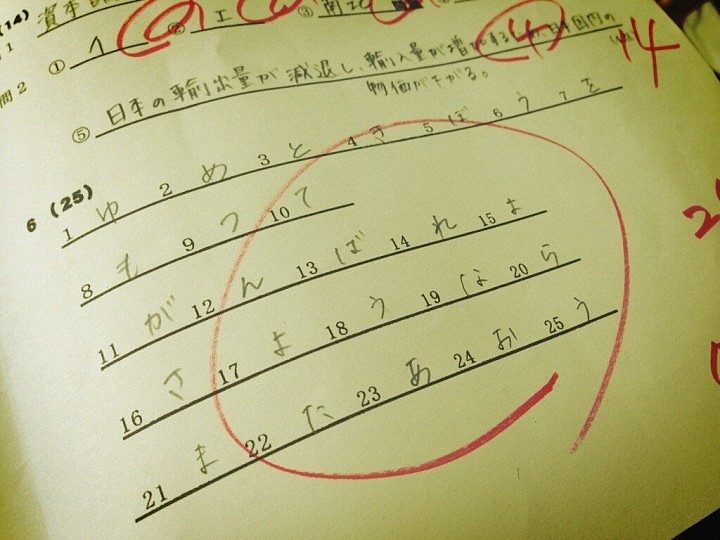 (14) 資本
① イ ② エ ③ 南北
問2
⑤ 日本の輸出量が減退し、輸入量が増加するため、日本国内の
物価が下がる。
④ 14
6 (25)
1 ゆ 2 め 3 と 4 き 5 ぼ 6 う 7 を
8 も 9 っ 10 て
11 が 12 ん 13 ば 14 れ 15 よ
16 さ 17 よ 18 う 19 な 20 ら
21 ま 22 た 23 あ 24 お 25 う